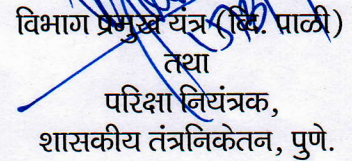 विभाग प्रमुख यंत्र (द्वि. पाळी)
तथा
परिक्षा नियंत्रक,
शासकीय तंत्रनिकेतन, पुणे.